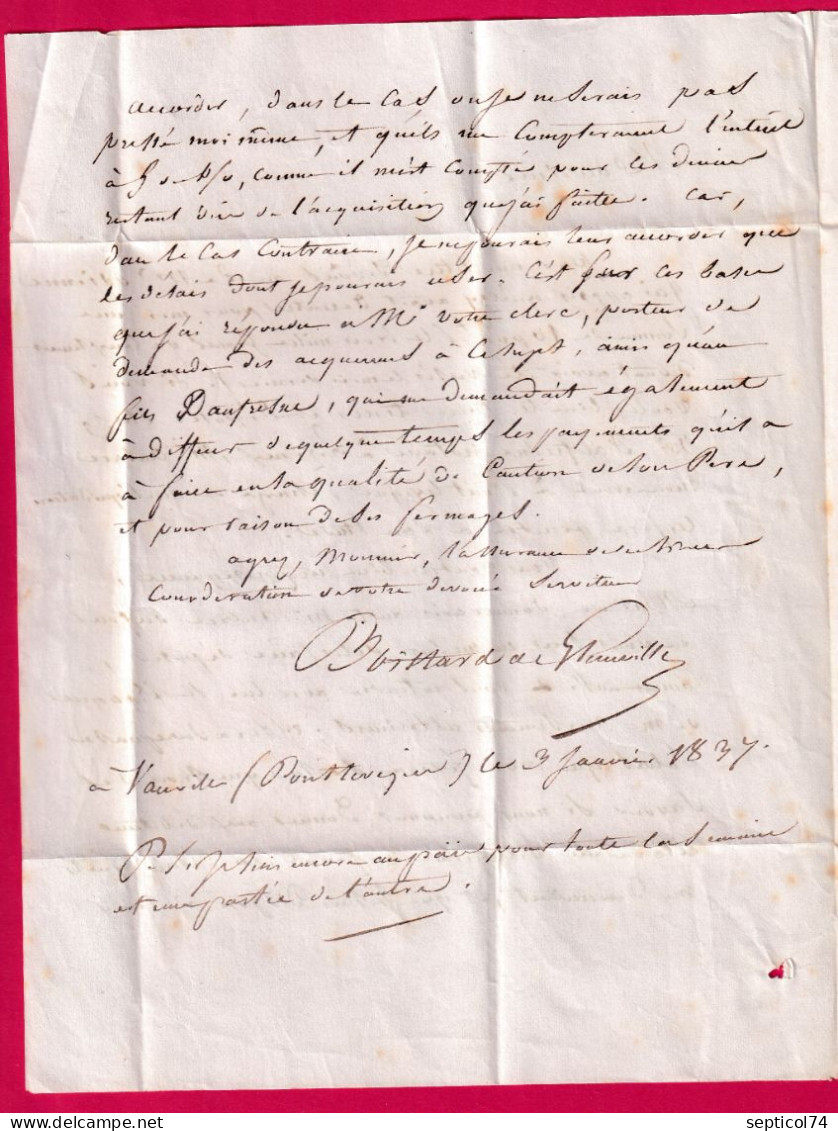 accorder, dans le cas ou je ne serais pas
pressé moi même, et qu'ils me compteraient l'interêt
à 5 p %, comme il m'est compté pour les
restant de l'acquisition que j'ai faitte. Car,
dans le cas contraire, je ne pourais leur accorder que
les delais dont je pourais user. C'est sur ces bases
que j'ai répondu à Mr votre clerc, porteur de
demande des acquereurs à ce sujet, ainsi qu'au
fils Daufresne, qui me demandait également
à differer de quelque temps les payements qu'il a
à faire en sa qualité de Caution de son Pere,
et pour raison de ses fermages.
agréez, Monsieur, l'assurance de
Consideration de votre devoué Serviteur
Boistard de
à Vauville (Pontlevesque) le 3 janvier 1837.
P. S. je suis encore au païs pour toute la Semaine
et une partie de l'autre.
SEPTICOL74